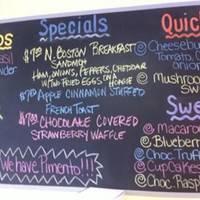 Specials
$7.50 N. Boston Breakfast
Sandwich
Ham, onions, Peppers, Cheddar
w/ Two Fried Eggs on a
Honcie
$7.00 Apple Cinnamon Stuffed
French Toast
$7.00 Chocolate Covered
Strawberry Waffle
We have Pimento!!!
Quick
Cheesebu
Tomato,
Onio
Mushroom
SW
Swe
macaro
Blueber
Choc. Truff
Cupcakes
Choc. Rasp